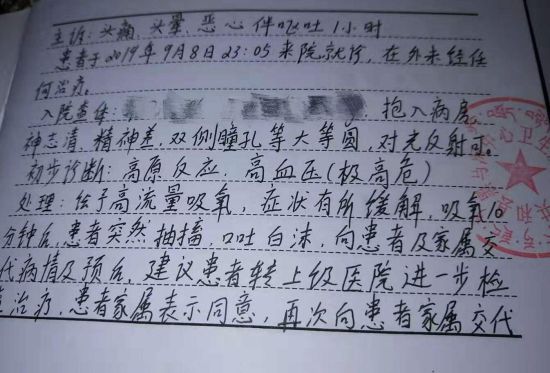 主诉：头痛、头晕、恶心伴呕吐1小时
患者于2019年9月8日23:05来院就诊，在外未经任
何治疗。
入院查体： 抱入病房，
神志清，精神差，双侧瞳孔等大等圆，对光反射可。
初步诊断：高原反应，高血压（极高危）
处理：给予高流量吸氧，症状有所缓解，吸氧10
分钟后，患者突然抽搐，口吐白沫，向患者及家属交
代病情及预后，建议患者转上级医院进一步检
治疗，患者家属表示同意，再次向患者家属交代